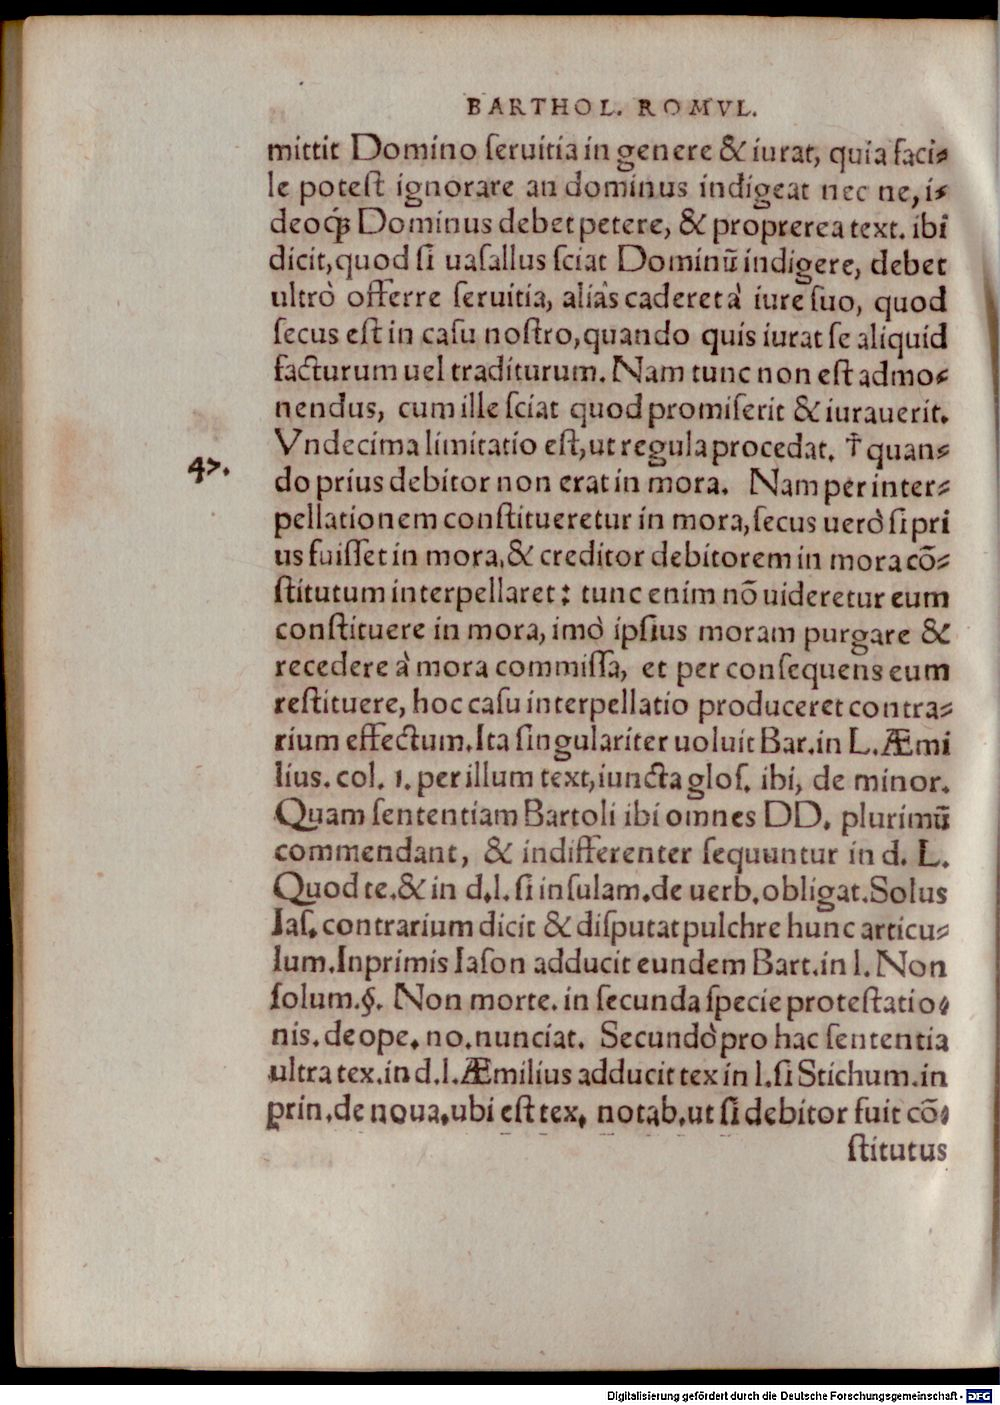 BARTHOL. ROMVL.
mittit Domino ſeruitia in genere & iurat, quia faci⸗
le poteſt ignorare an dominus indigeat nec ne, i⸗
deoq́ꝫ Dominus debet petere, & proprerea text. ibi
dicit, quod ſi uaſallus ſciat Dominū indigere, debet
ultrò offerre ſeruitia, aliàs caderet à iure ſuo, quod
ſecus eſt in caſu noſtro, quando quis iurat ſe aliquid
facturum uel traditurum. Nam tunc non eſt admo⸗
nendus, cum ille ſciat quod promiſerit & iurauerit.
Vndecima limitatio eſt, ut regula procedat. † quan⸗
47.
do prius debitor non erat in mora. Nam per inter⸗
pellationem conſtitueretur in mora, ſecus uerò ſi pri
us fuiſſet in mora, & creditor debitorem in mora cō⸗
ſtitutum interpellaret: tunc enim nō uideretur eum
conſtituere in mora, imò ipſius moram purgare &
recedere à mora commiſſa, et per conſequens eum
reſtituere, hoc caſu interpellatio produceret contra⸗
rium effectum. Ita ſingulariter uoluit Bar. in L. Æmi
lius. col. 1. per illum text, iuncta gloſ. ibi, de minor.
Quam ſententiam Bartoli ibi omnes DD. plurimū
commendant, & indifferenter ſequuntur in d. L.
Quod te. & in d. l. ſi inſulam. de uerb. obligat. Solus
Iaſ. contrarium dicit & diſputat pulchre hunc articu⸗
lum. Inprimis Iaſon adducit eundem Bart. in l. Non
ſolum. §. Non morte. in ſecunda ſpecie proteſtatio⸗
nis. de ope. no. nunciat. Secundò pro hac ſententia
ultra tex. in d. l. Æmilius adducit tex in l. ſi Stichum. in
prin. de noua. ubi eſt tex. notab. ut ſi debitor fuit cō⸗
ſtitutus
Digitalisierung gefördert durch die Deutsche Forschungsgemeinschaft - DFG